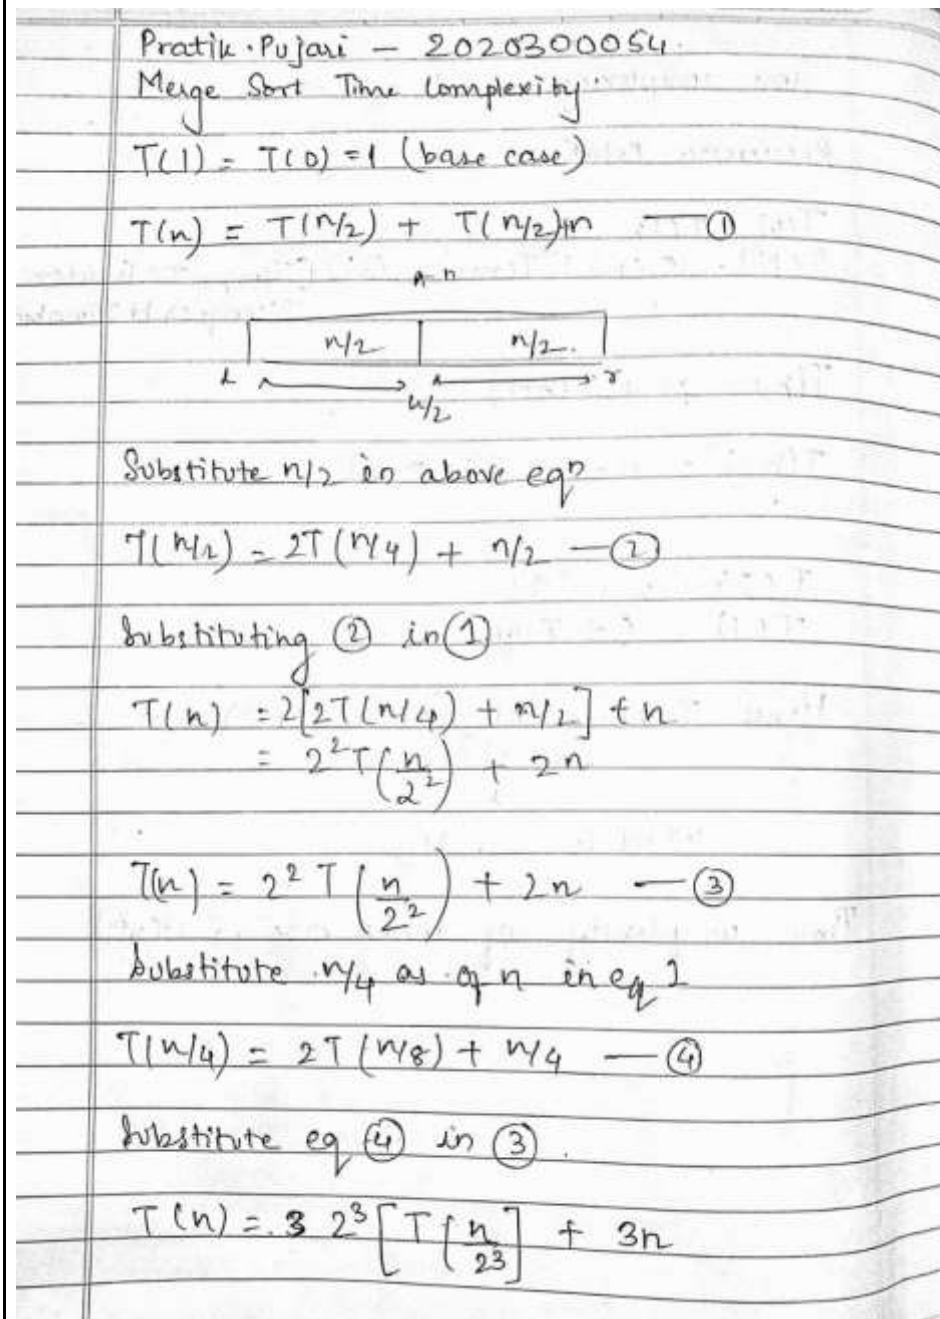 Pratik . Pujari - 2020300054.
Merge Sort Time Complexity
T(1) = T(0) = 1 (base case)
T(n) = T(n/2) + T(n/2)+n — ①
n
n/2 n/2.
l r
n/2
Substitute n/2 in above eqn
T(n/2) = 2T(n/4) + n/2 — ②
Substituting ② in ①
T(n) = 2[2T(n/4) + n/2] + n
= 2²T(n/2²) + 2n
T(n) = 2² T(n/2²) + 2n — ③
Substitute n/4 as of n in eq 1
T(n/4) = 2T(n/8) + n/4 — ④
Substitute eq ④ in ③.
T(n) = 3 2³ [T(n/2³] + 3n